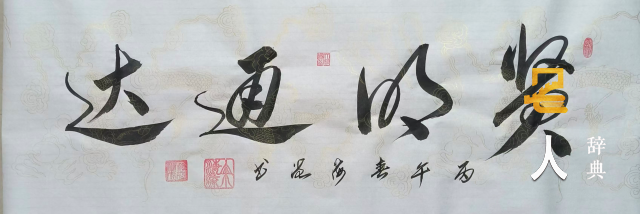 贤明通达
丙午春海书
名人辞典